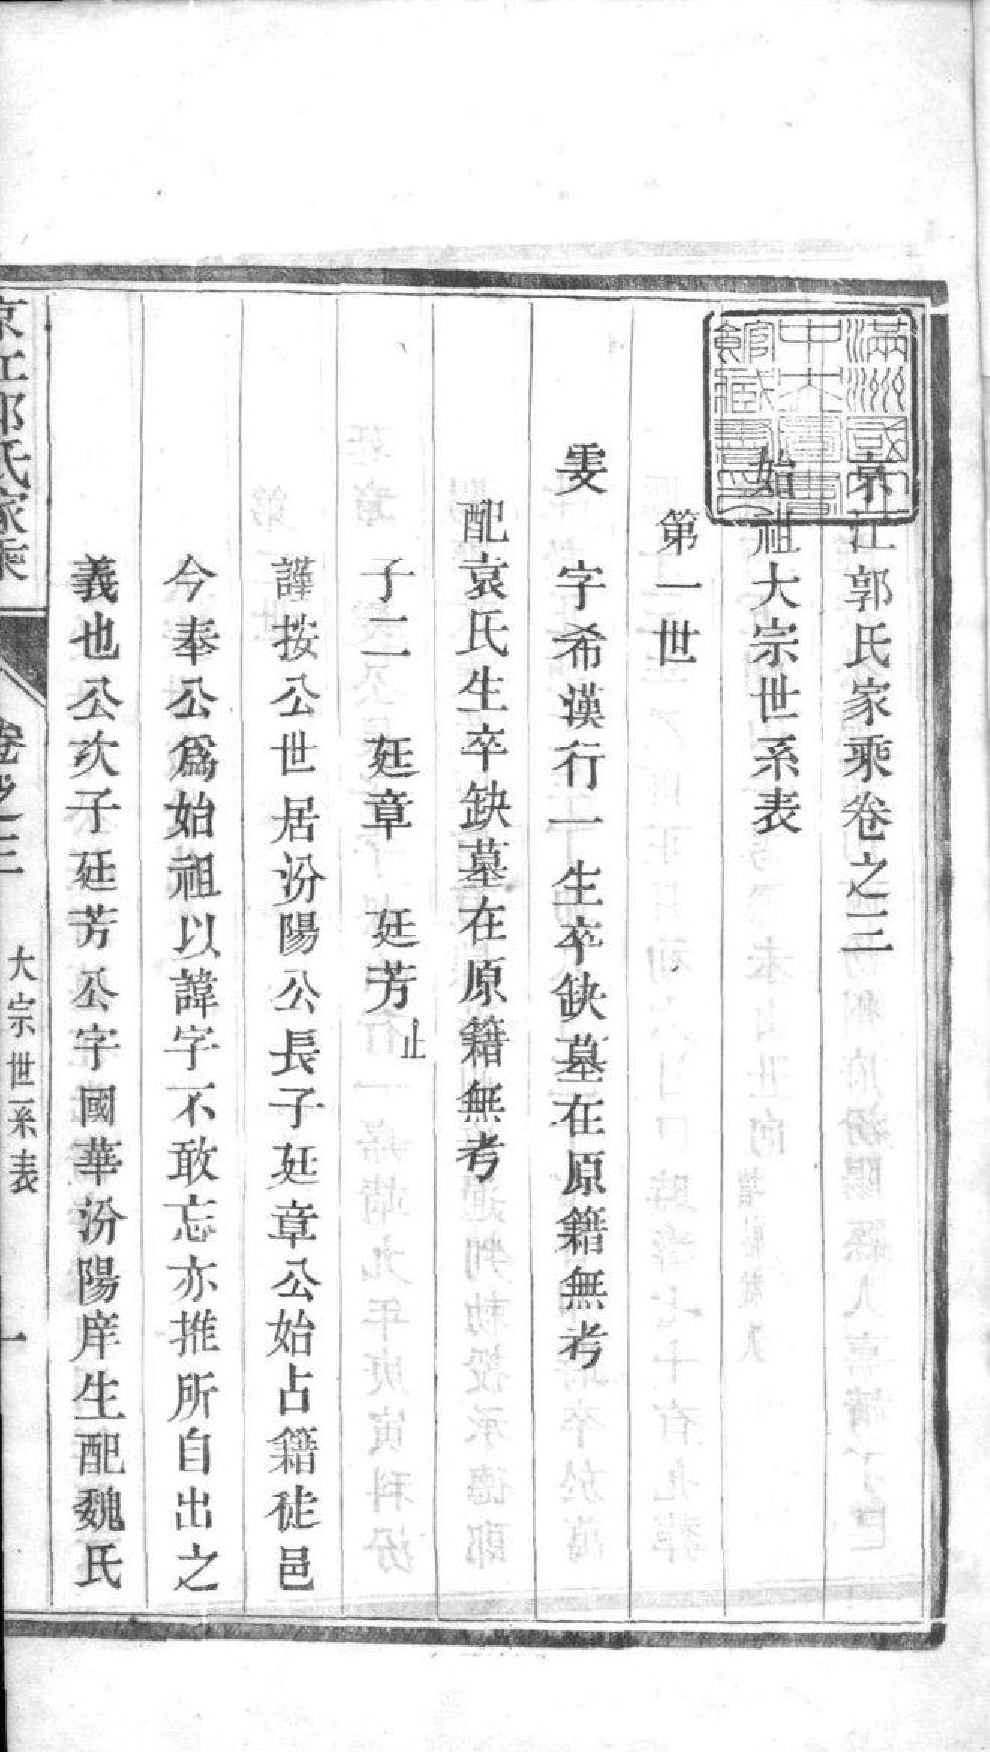 京江郭氏家乘卷之三
始祖大宗世系表
第一世
雯 字希漢行一生卒缺墓在原籍無考
配袁氏生卒缺墓在原籍無考
子二 廷章 廷芳止
謹按公世居汾陽公長子廷章公始占籍徒邑
今奉公爲始祖以諱字不敢忘亦推所自出之
義也公次子廷芳公字國華汾陽庠生配魏氏
京江郭氏家乘 卷之三 大宗世系表 一
滿洲國
中央圖書
館藏書